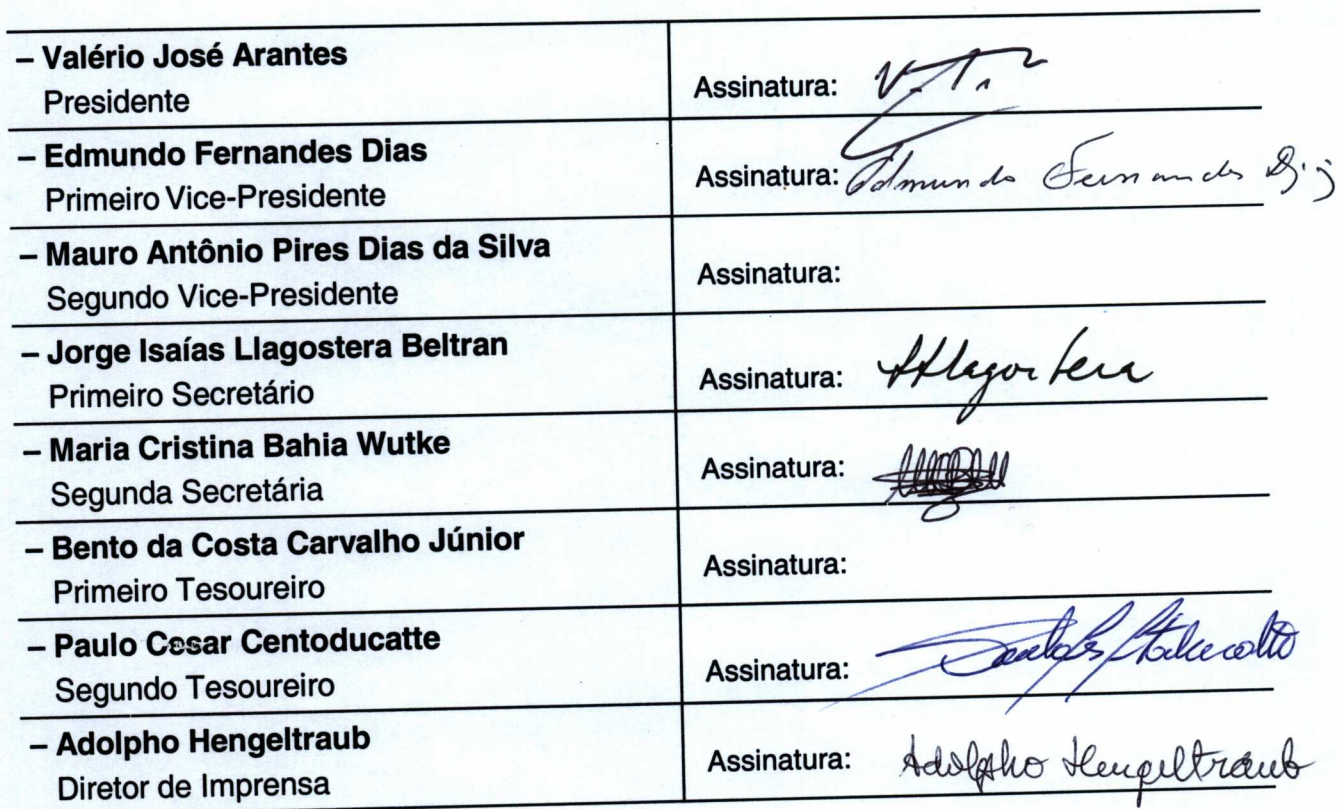 – Valério José Arantes
Presidente
Assinatura:
– Edmundo Fernandes Dias
Primeiro Vice-Presidente
Assinatura: Edmundo Fernandes Dias
– Mauro Antônio Pires Dias da Silva
Segundo Vice-Presidente
Assinatura:
– Jorge Isaías Llagostera Beltran
Primeiro Secretário
Assinatura: Llagostera
– Maria Cristina Bahia Wutke
Segunda Secretária
Assinatura:
– Bento da Costa Carvalho Júnior
Primeiro Tesoureiro
Assinatura:
– Paulo Cesar Centoducatte
Segundo Tesoureiro
Assinatura:
– Adolpho Hengeltraub
Diretor de Imprensa
Assinatura: Adolpho Hengeltraub